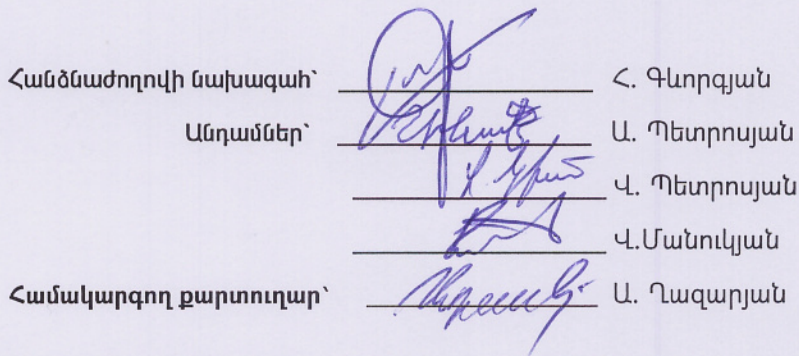 Հանձնաժողովի նախագահ՝ Հ. Գևորգյան
Անդամներ՝ Ա. Պետրոսյան
Վ. Պետրոսյան
Վ.Մանուկյան
Համակարգող քարտուղար՝ Ա. Ղազարյան